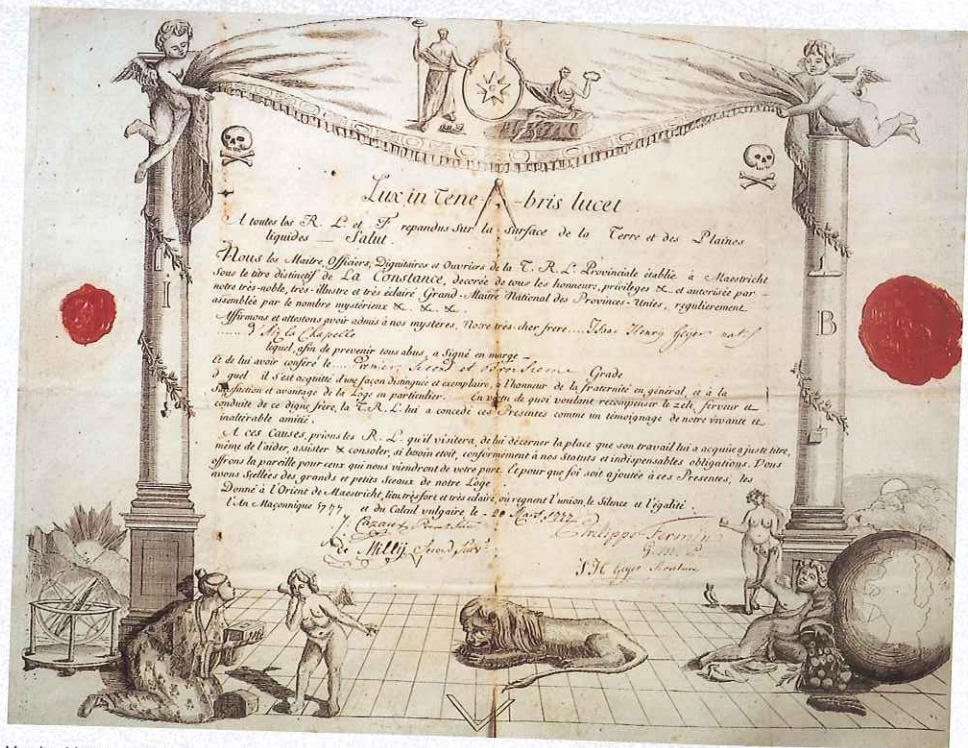 Lux in Tene-bris lucet
A toutes les R. L. et F. repandus sur la surface de la Terre et des Plaines
liquides — Salut.
Nous les Maitre, Officiers, Dignitaires et Ouvriers de la T. R. L. Provinciale établie à Maestricht
sous le titre distinctif de La Constance, decorée de tous les honneurs, privileges &. et autorisée par
notre très-noble, très-illustre et très éclairé Grand-Maitre National des Provinces-Unies, regulierement
assemblée par le nombre mystérieux &. &. &.
Affirmons et attestons avoir admis à nos mysteres, Notre très-cher frere.... Henry Geyer natif
d'Aix la Chapelle
lequel, afin de prevenir tous abus, a signé en marge —
Et de lui avoir conféré le.... Premier, Second et Grade
d quel il s'est acquitté d'une façon distinguée et exemplaire, à l'honneur de la fraternité en général, et à la
satisfaction et avantage de la Loge en particulier. En vertu de quoi voulant recompenser le zele, ferveur et
conduite de ce digne frère, la T. R. L. lui a concedé ces Presentes comme un témoignage de notre vivante et
inaltérable amitié.
A ces Causes, prions les R. L. qu'il visitera, de lui décerner la place que son travail lui a acquise à juste titre,
même de l'aider, assister & consoler, si besoin étoit, conformément à nos Statuts et indispensables obligations. Nous
offrons la pareille pour ceux qui nous viendront de votre part. Et pour que foi soit ajoutée à ces Presentes, les
avons Scellées des grands et petits Sceaux de notre Loge.
Donné à l'Orient de Maestricht, lieu très fort et très eclairé, où regnent l'union, le Silence et l'égalité.
l'An Maçonnique 5777 et du Calcul vulgaire le - 20 1777
De Millij Second Surv.
Philippe Fermin
J H Geyer
I
B